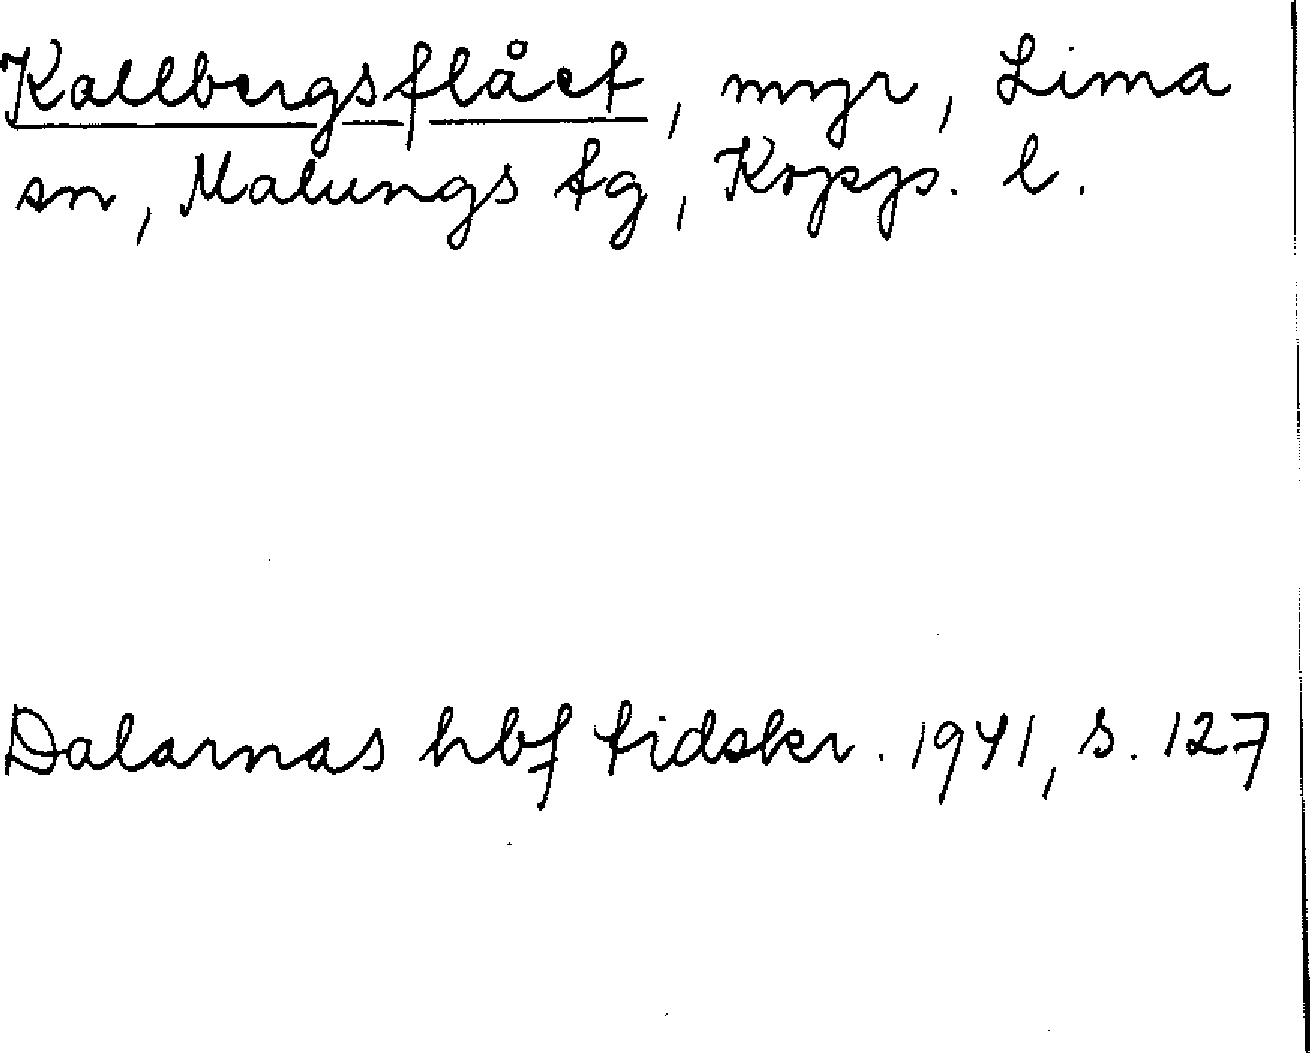 Kallbergsflået, myr, Lima
sn, Malungs tg, Kopp. l.
Dalarnas hbf tidskr. 1941, s. 127